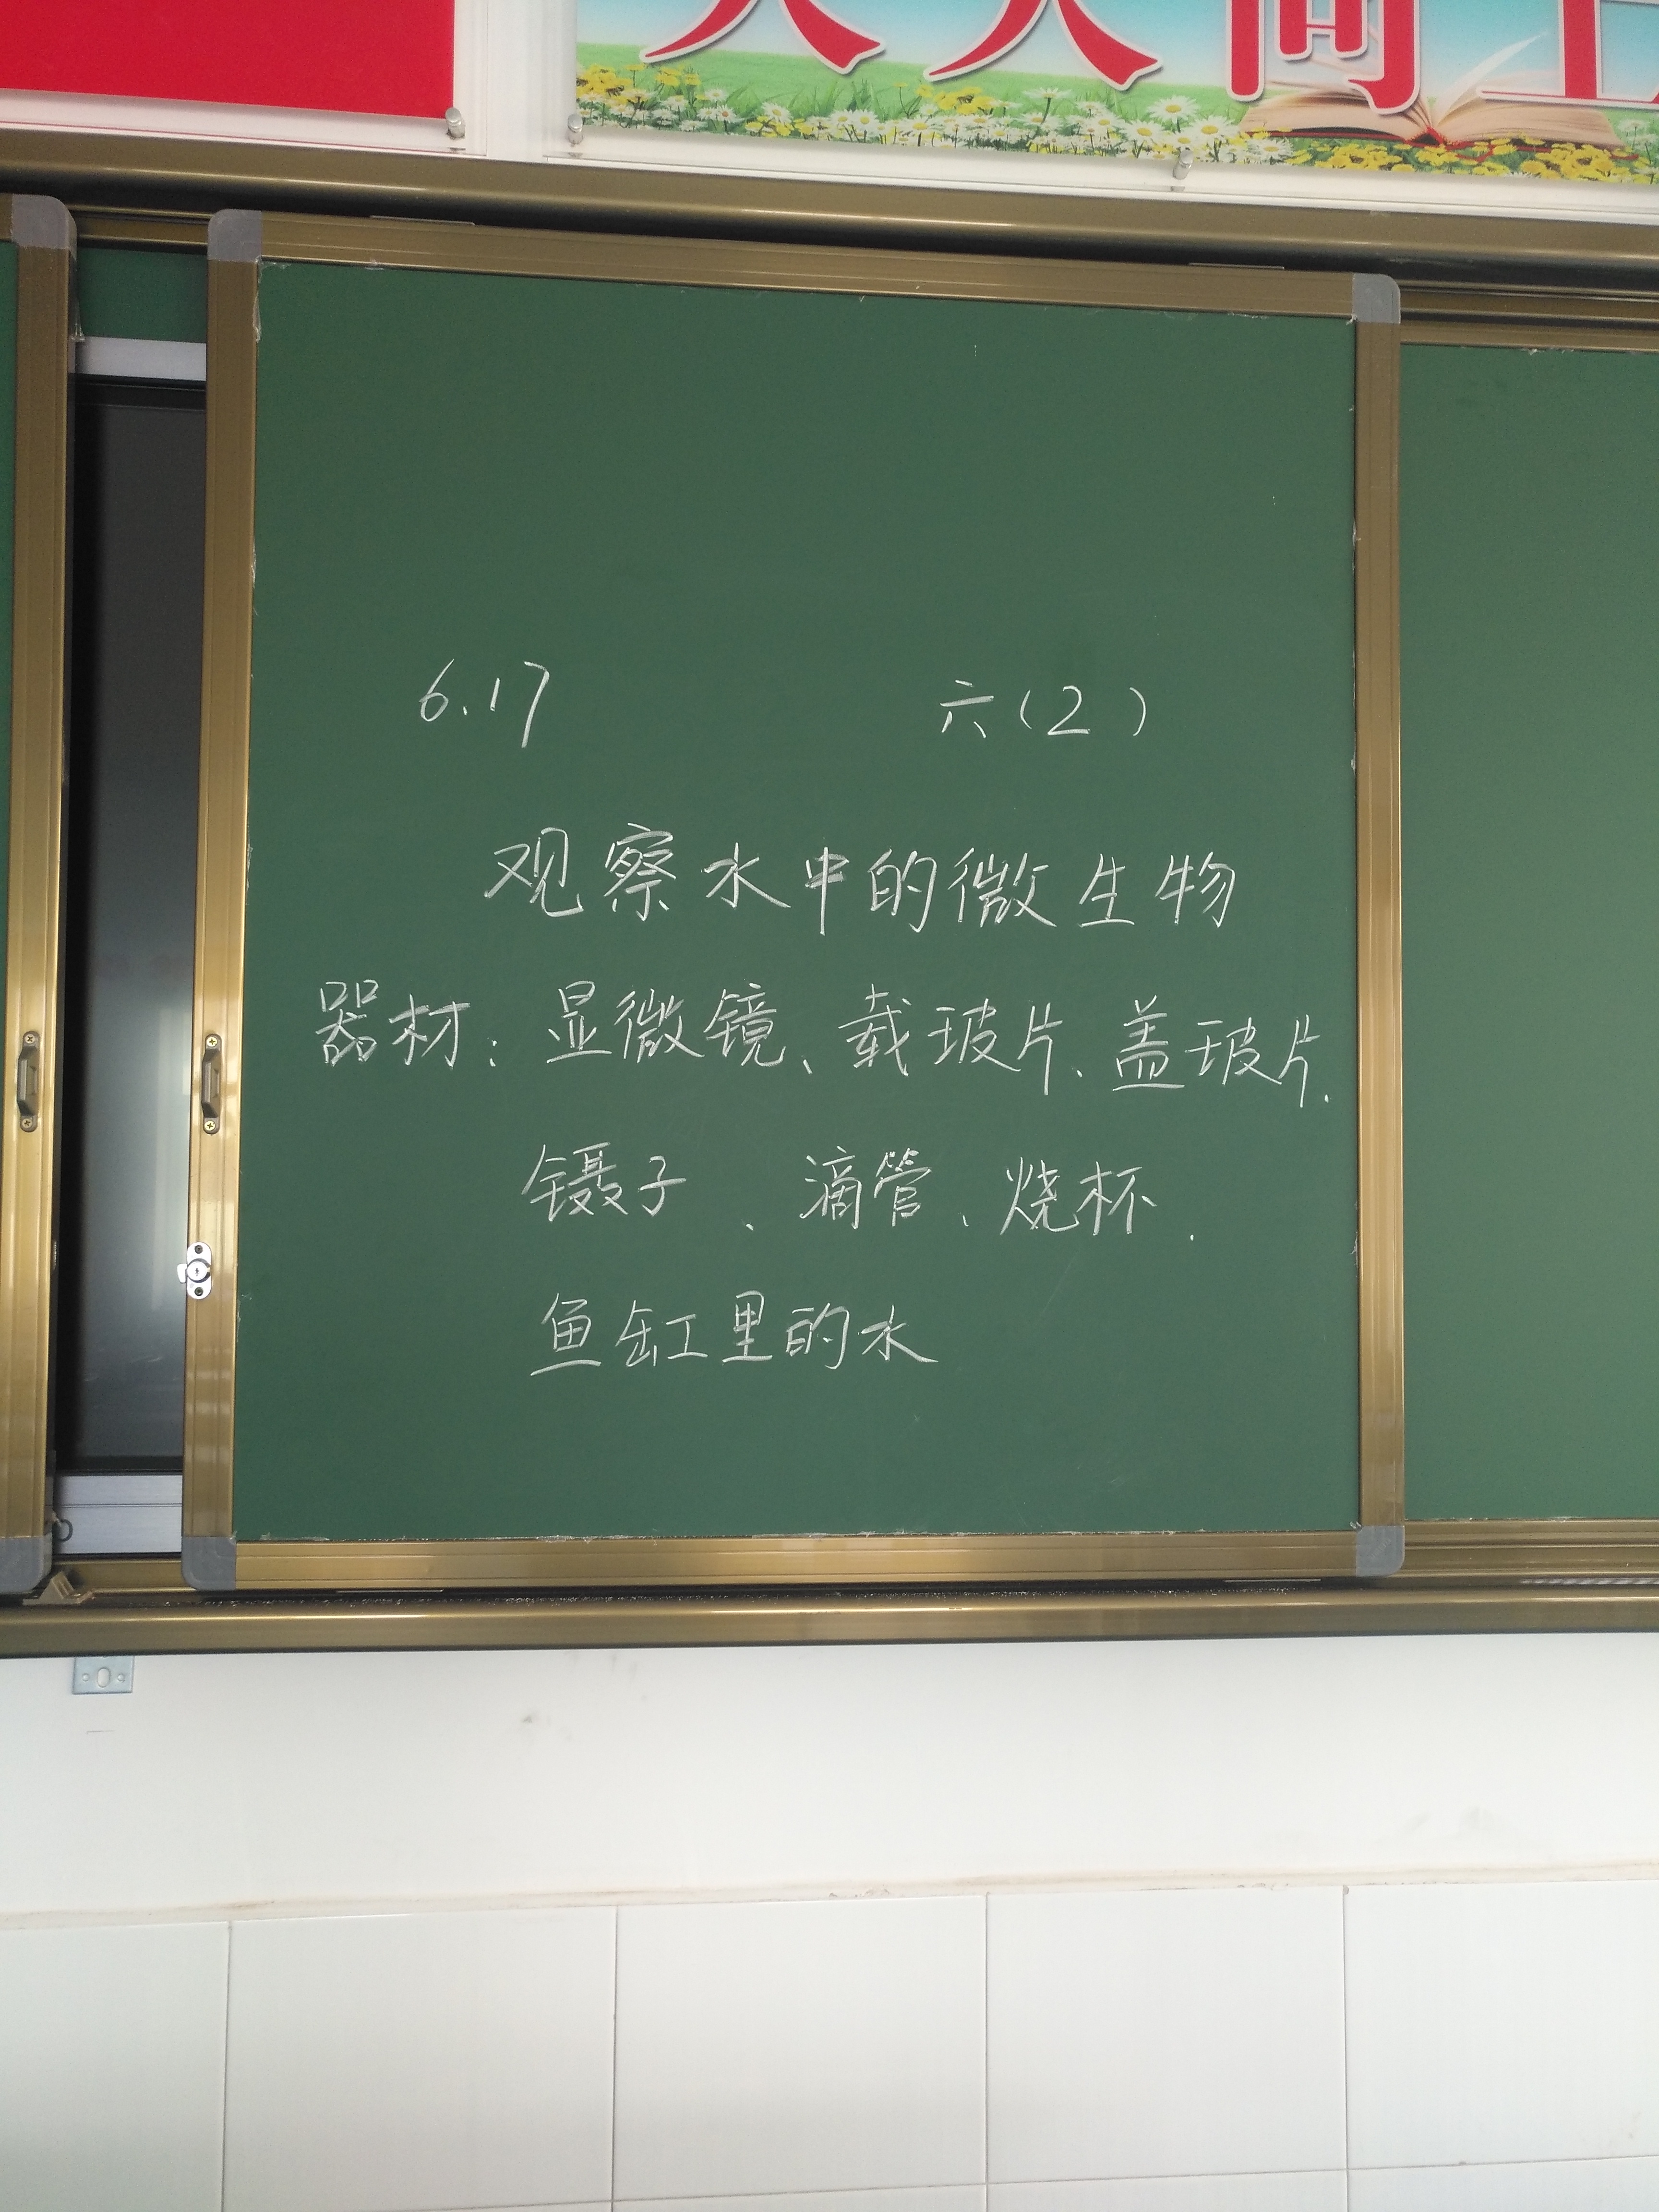 天天向上
6.17 六(2)
观察水中的微生物
器材：显微镜、载玻片、盖玻片、
镊子、滴管、烧杯、
鱼缸里的水